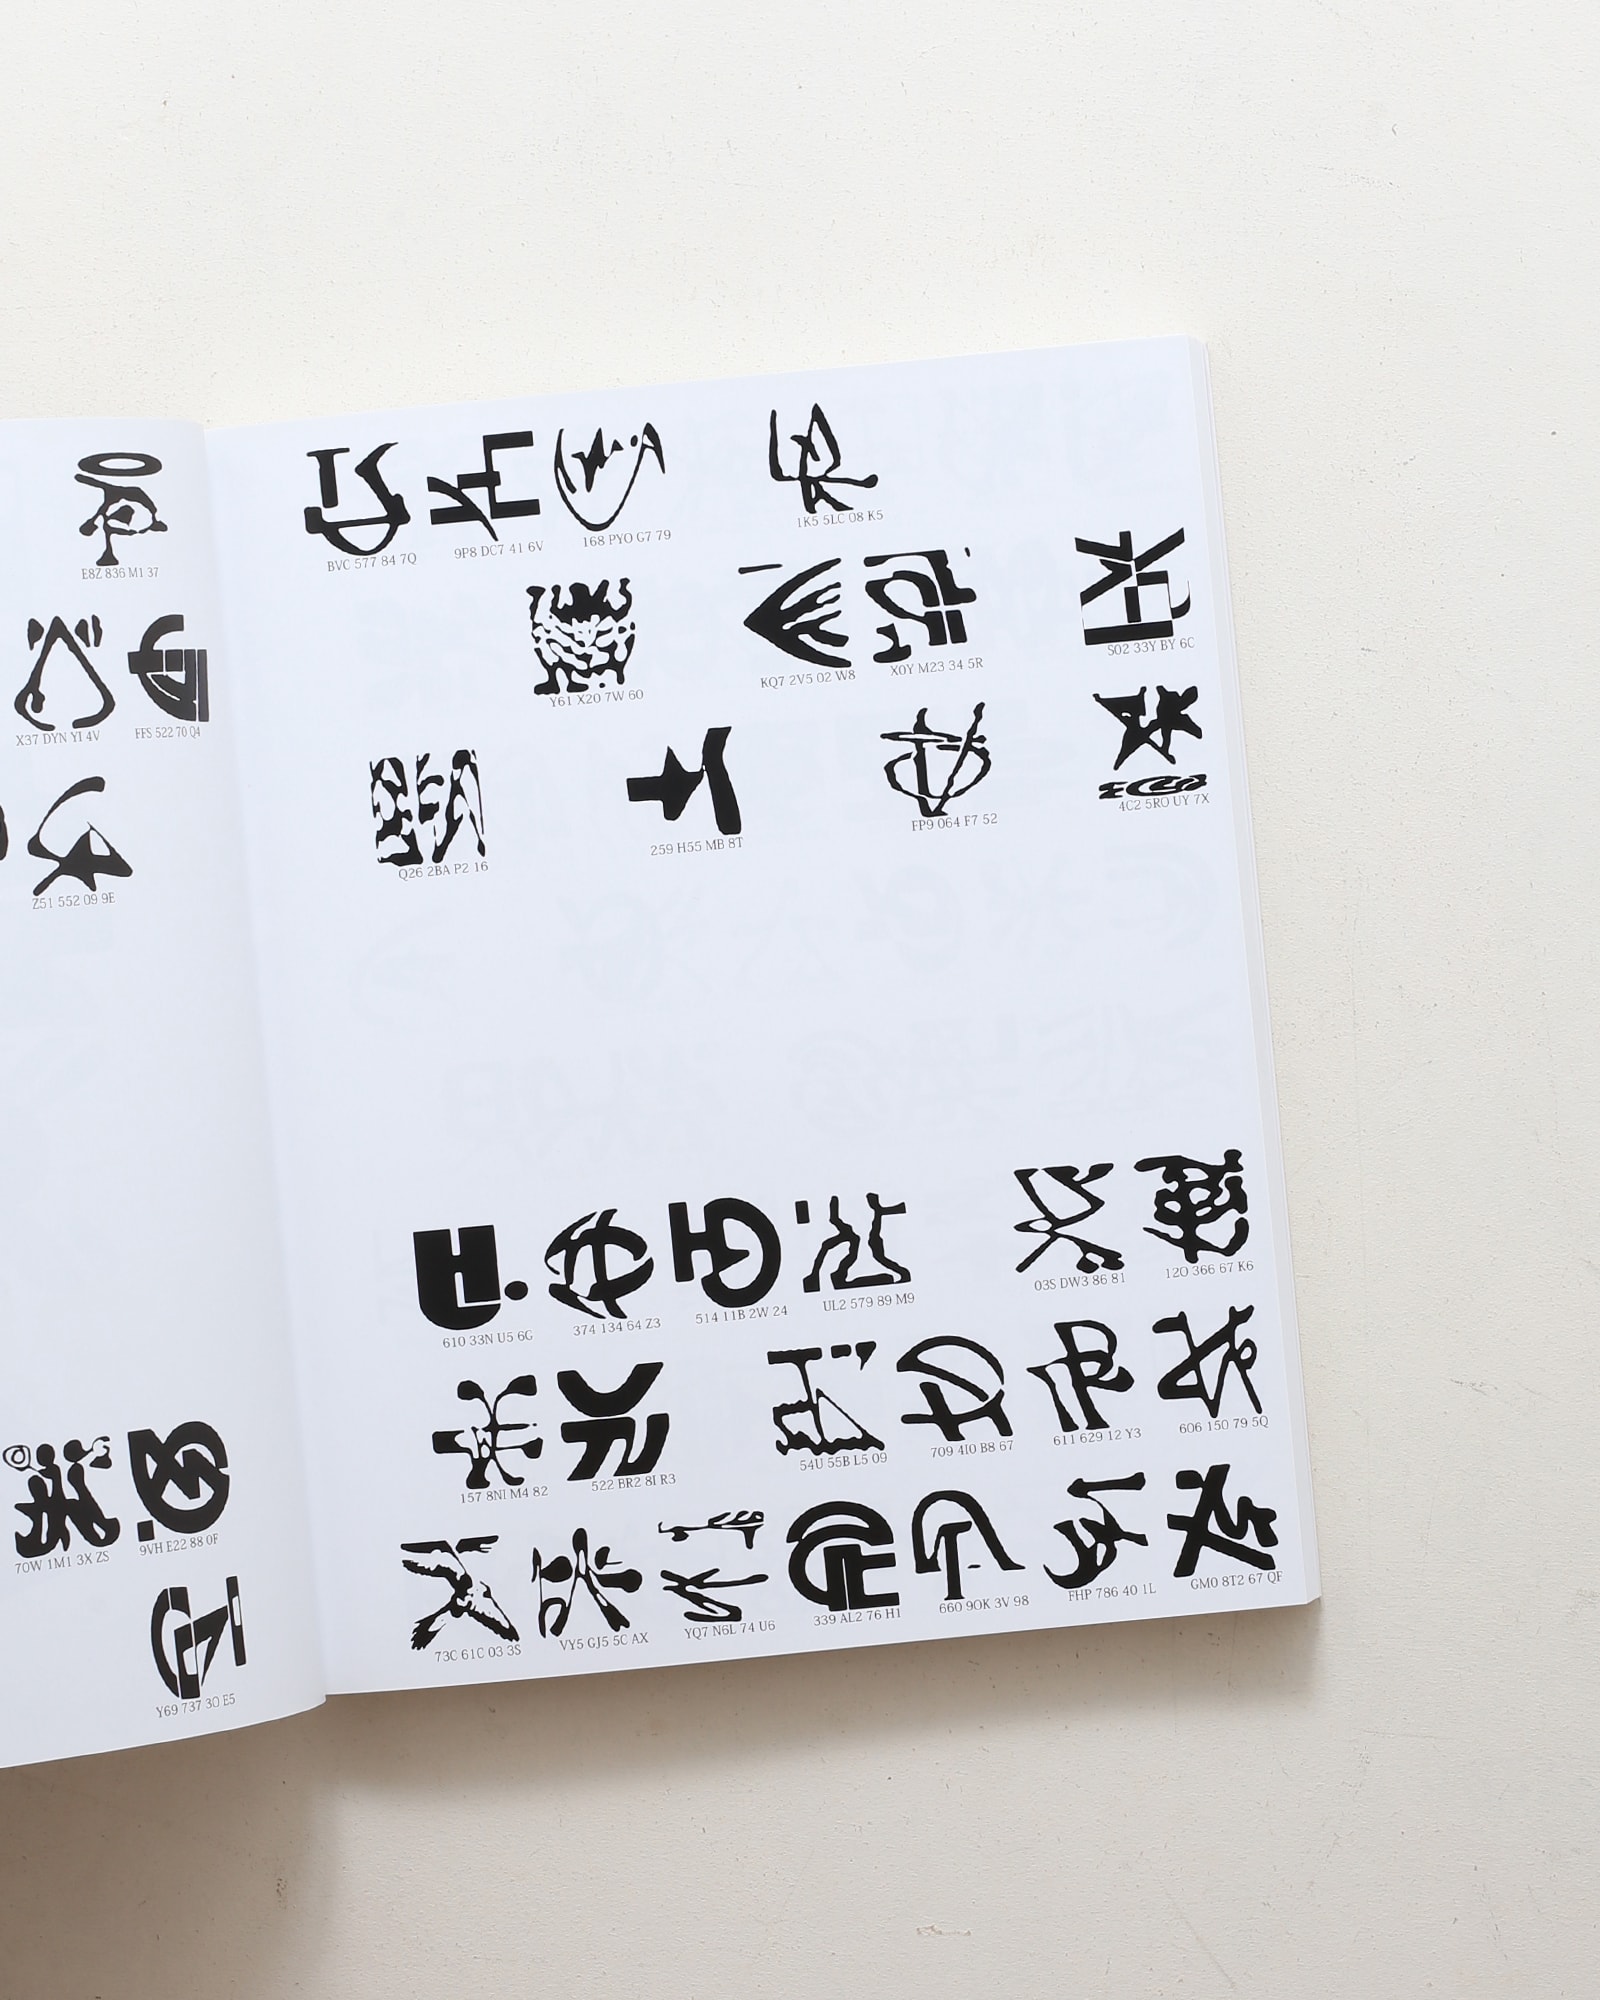 E8Z 836 M1 37
X37 DYN YI 4V
FFS 522 70 Q4
Z51 552 09 9E
70W 1M1 3X ZS
9VH E22 88 0F
Y69 737 3O E5
BVC 577 84 7Q
9P8 DC7 41 6V
168 PYO G7 79
1K5 5LC 08 K5
Y61 X20 7W 60
KQ7 2V5 02 W8
X0Y M23 34 5R
S02 33Y BY 6C
Q26 2BA P2 16
259 H55 MB 8T
FP9 064 F7 52
4C2 5RO UY 7X
610 33N U5 6G
374 134 64 Z3
514 11B 2W 24
UL2 579 89 M9
03S DW3 86 81
12O 366 67 K6
157 8NI M4 82
522 BR2 8I R3
54U 55B L5 09
709 4I0 B8 67
611 629 12 Y3
606 150 79 5Q
73C 61C 03 3S
VY5 GJ5 5C AX
YQ7 N6L 74 U6
339 AL2 76 H1
660 9OK 3V 98
FHP 786 40 1L
GM0 8T2 67 QF